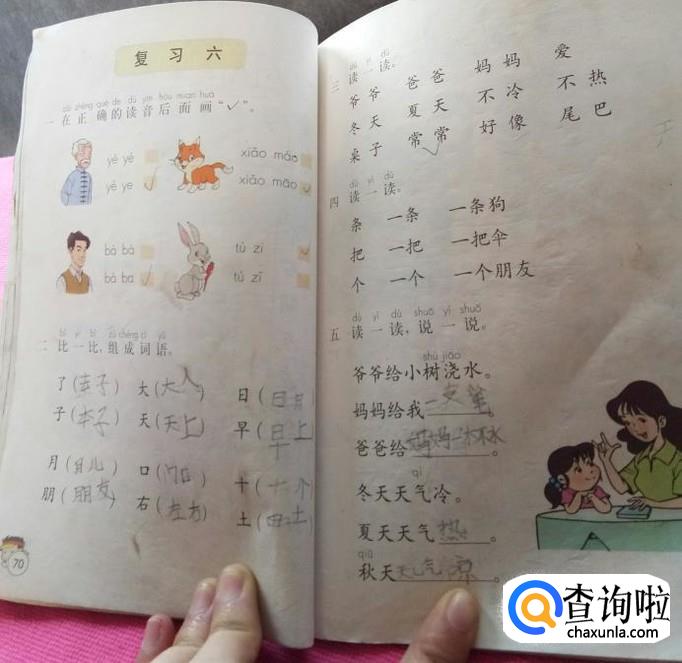 复习六
zài zhèng què de dú yīn hòu miàn huà
一 在正确的读音后面画“✓”。
yé yé
yé ye
xiāo māo
xiǎo māo
bà bà
bà ba
tù zi
tù zī
bǐ yì bǐ zǔ chéng cí yǔ
二 比一比,组成词语。
了( 子) 大(大人) 日(日 )
子( 子) 天(天上) 早(早上)
月( 儿) 口(门口) 十(十个)
朋(朋友) 右(左方) 土( 土)
70
dú yì dú
三 读一读。
爷爷 爸爸 妈妈 爱
冬天 夏天 不冷 不热
桌子 常常 好像 尾巴
dú yì dú
四 读一读。
条 一条 一条狗
把 一把 一把伞
个 一个 一个朋友
dú yì dú shuō yì shuō
五 读一读,说一说。
shù jiāo
爷爷给小树浇水。
妈妈给我一支笔。
爸爸给妈妈一 水。
qì
冬天天气冷。
夏天天气热。
qiū
秋天天气凉。
查询啦
chaxunla.com